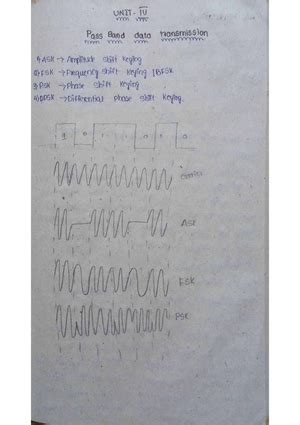 UNIT-IV
Pass Band data transmission
1) ASK → Amplitude shift keying
2) FSK → Frequency shift keying | BFSK
3) PSK → Phase shift keying
4) DPSK → Differential phase shift keying.
1 0 1 1 0 1 0
Carrier
ASK
FSK
PSK